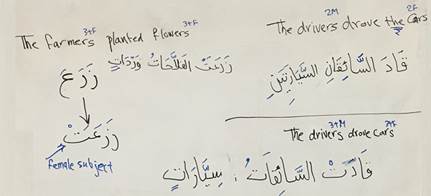 3+F 3+F
The farmers planted flowers
زَرَعَتْ الفَلَّاحَاتُ وَرْدَاتٍ
زَرَعَ
زَرَعَتْ
female subject
2M 2F
The drivers drove the cars
قَادَ السَّائِقَانِ السَّيَّارَتَيْنِ
3+M 3+F
The drivers drove cars
قَادَتْ السَّائِقَاتُ سَيَّارَاتٍ